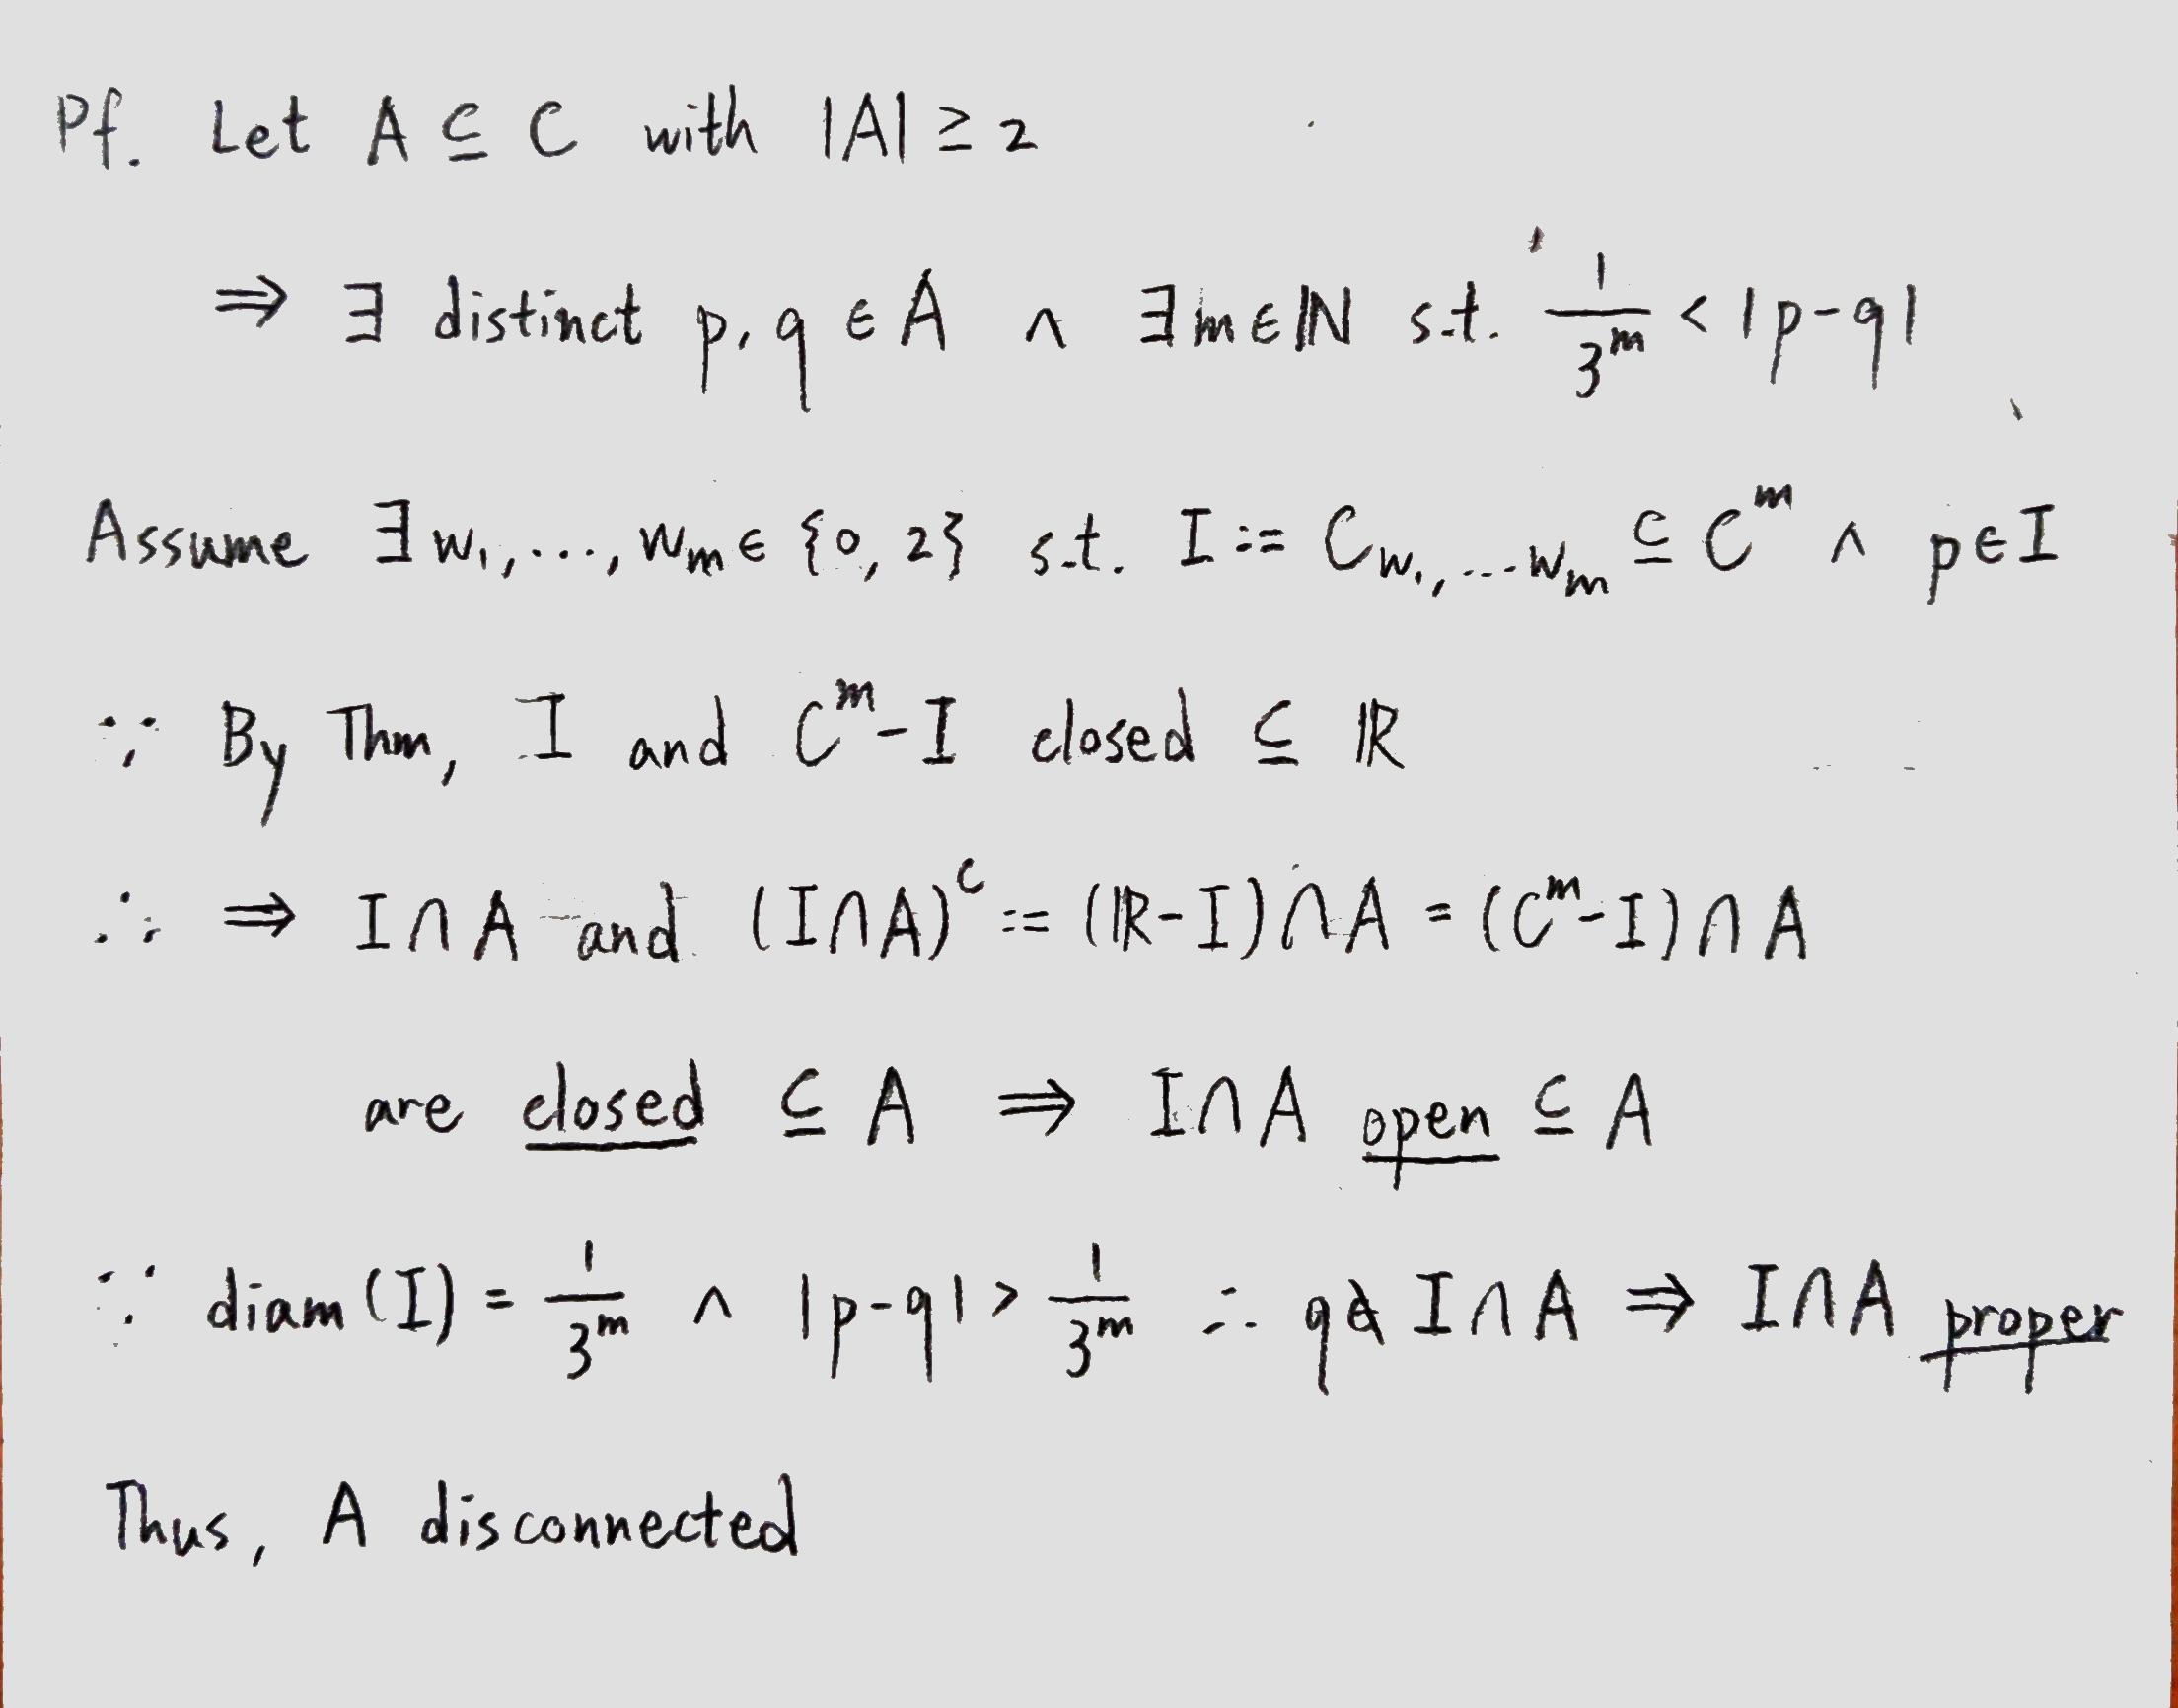 Pf. Let A ⊆ C with |A| ≥ 2
⇒ ∃ distinct p, q ∈ A ∧ ∃m∈ℕ s.t. 1/3^m < |p-q|
Assume ∃w₁,..., wₘ ∈ {0, 2} s.t. I := C_{w₁,...wₘ} ⊆ C^m ∧ p∈I
∵ By Thm, I and C^m-I closed ⊆ ℝ
∴ ⇒ I∩A and (I∩A)^c := (ℝ-I)∩A = (C^m-I)∩A
are closed ⊆ A ⇒ I∩A open ⊆ A
∵ diam(I) = 1/3^m ∧ |p-q| > 1/3^m ∴ q∉ I∩A ⇒ I∩A proper
Thus, A disconnected